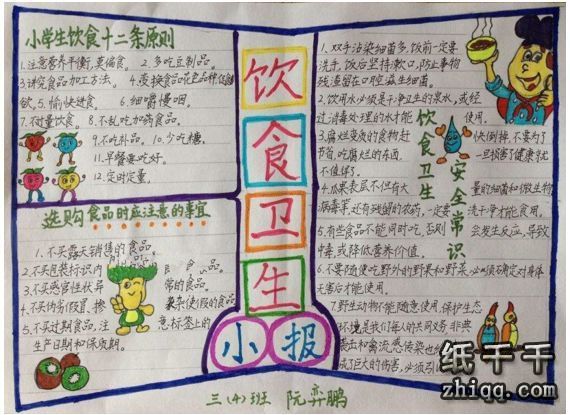 小学生饮食十二条原则
1.注意营养平衡,莫偏食。 2.多吃豆制品。
3.讲究食品加工方法。 4.变换食品花色品种促食
欲。 5.愉快进食。 6.细嚼慢咽。
7.不过量饮食。 8.不乱吃加药食品。
9.不吃补品。 10.少吃糖。
11.早餐要吃好。
12.定时定量。
选购食品时应注意的事宜
1.不买露天销售的食品。
2.不买包装标识内 食品。
3.不买感官性状异 常的食品。
4.不买伪劣假冒、掺 杂使假的食品
5.不买过期食品,注 意标签上的
生产日期和保质期。
饮
食
卫
生
小报
1.双手沾染细菌多,饭前一定要
洗手,饭后坚持漱口,防止事物
残渣留在口腔滋生细菌。
2.饮用水必须是干净卫生的泉水,或经
过消毒处理的水才能 使用。
3.腐烂变质的食物赶 快倒掉,不要为了
节省,吃腐烂的东西 一旦损害了健康就
不值得了。
4.瓜果表层不但有大 量的细菌和微生物
病毒等,还有残留的农药,一定要 洗干净才能食用。
5.有些食品不能同时吃,否则 会发生反应,导致
中毒,或降低营养价值。
6.不要随便吃野外的野果和野菜,必须确定对身体
无害后才能使用。
7.野生动物不能随意使用,保护生态
环境是我们每人的共同义务,非典
和禽流感传染也给
成了巨大的伤害,必须引
饮食卫生
安全常识
三(4)班 阮弈鹏
纸千千
zhiqq.com